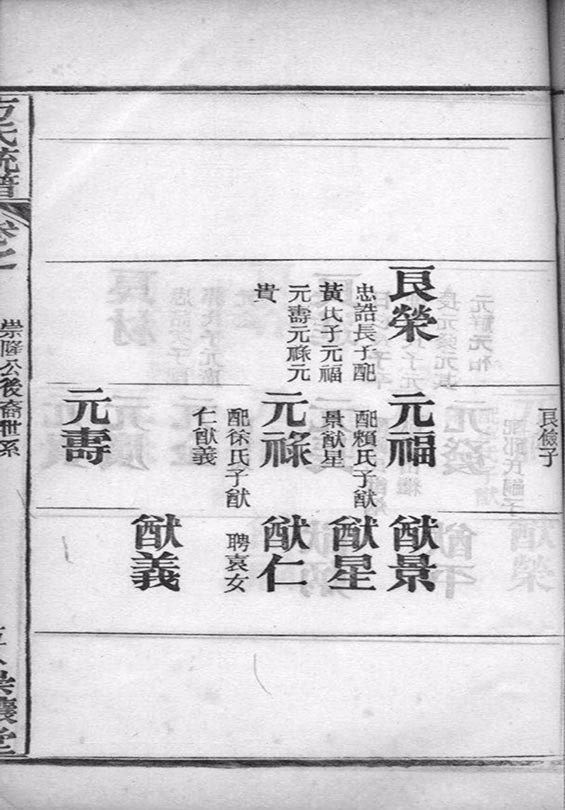 良儉子
良榮
忠誥長子配
黃氏子元福
元壽元祿元
貴
元福
配賴氏子猷
景猷星
元祿
配徐氏子猷
仁猷義
元壽
猷景
猷星
猷仁
聘袁女
猷義
方氏統譜
卷之
崇隆公後裔世系